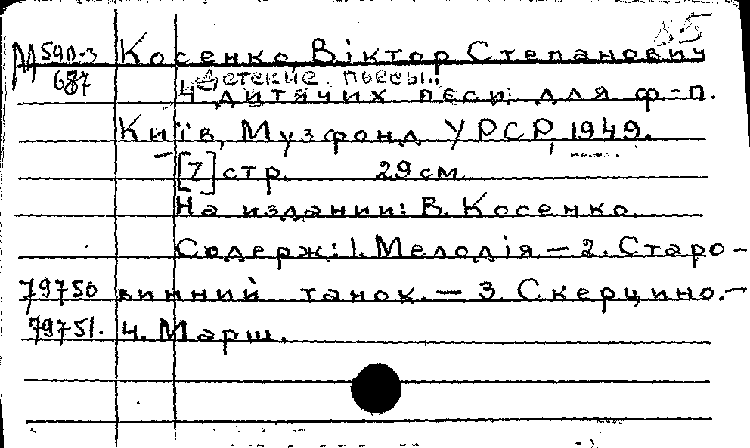 М 590-3 Косенко, Віктор Степанович
687 Детские пьесы.
4 дитячих пєси для ф-п.
Київ, Музфонд УРСР, 1949.
[7] стр. 29 см.
На издании: В. Косенко.
Содерж: 1. Мелодія – 2. Старо-
79750 винний танок. – 3. Скерцино. –
79751. 4. Марш.